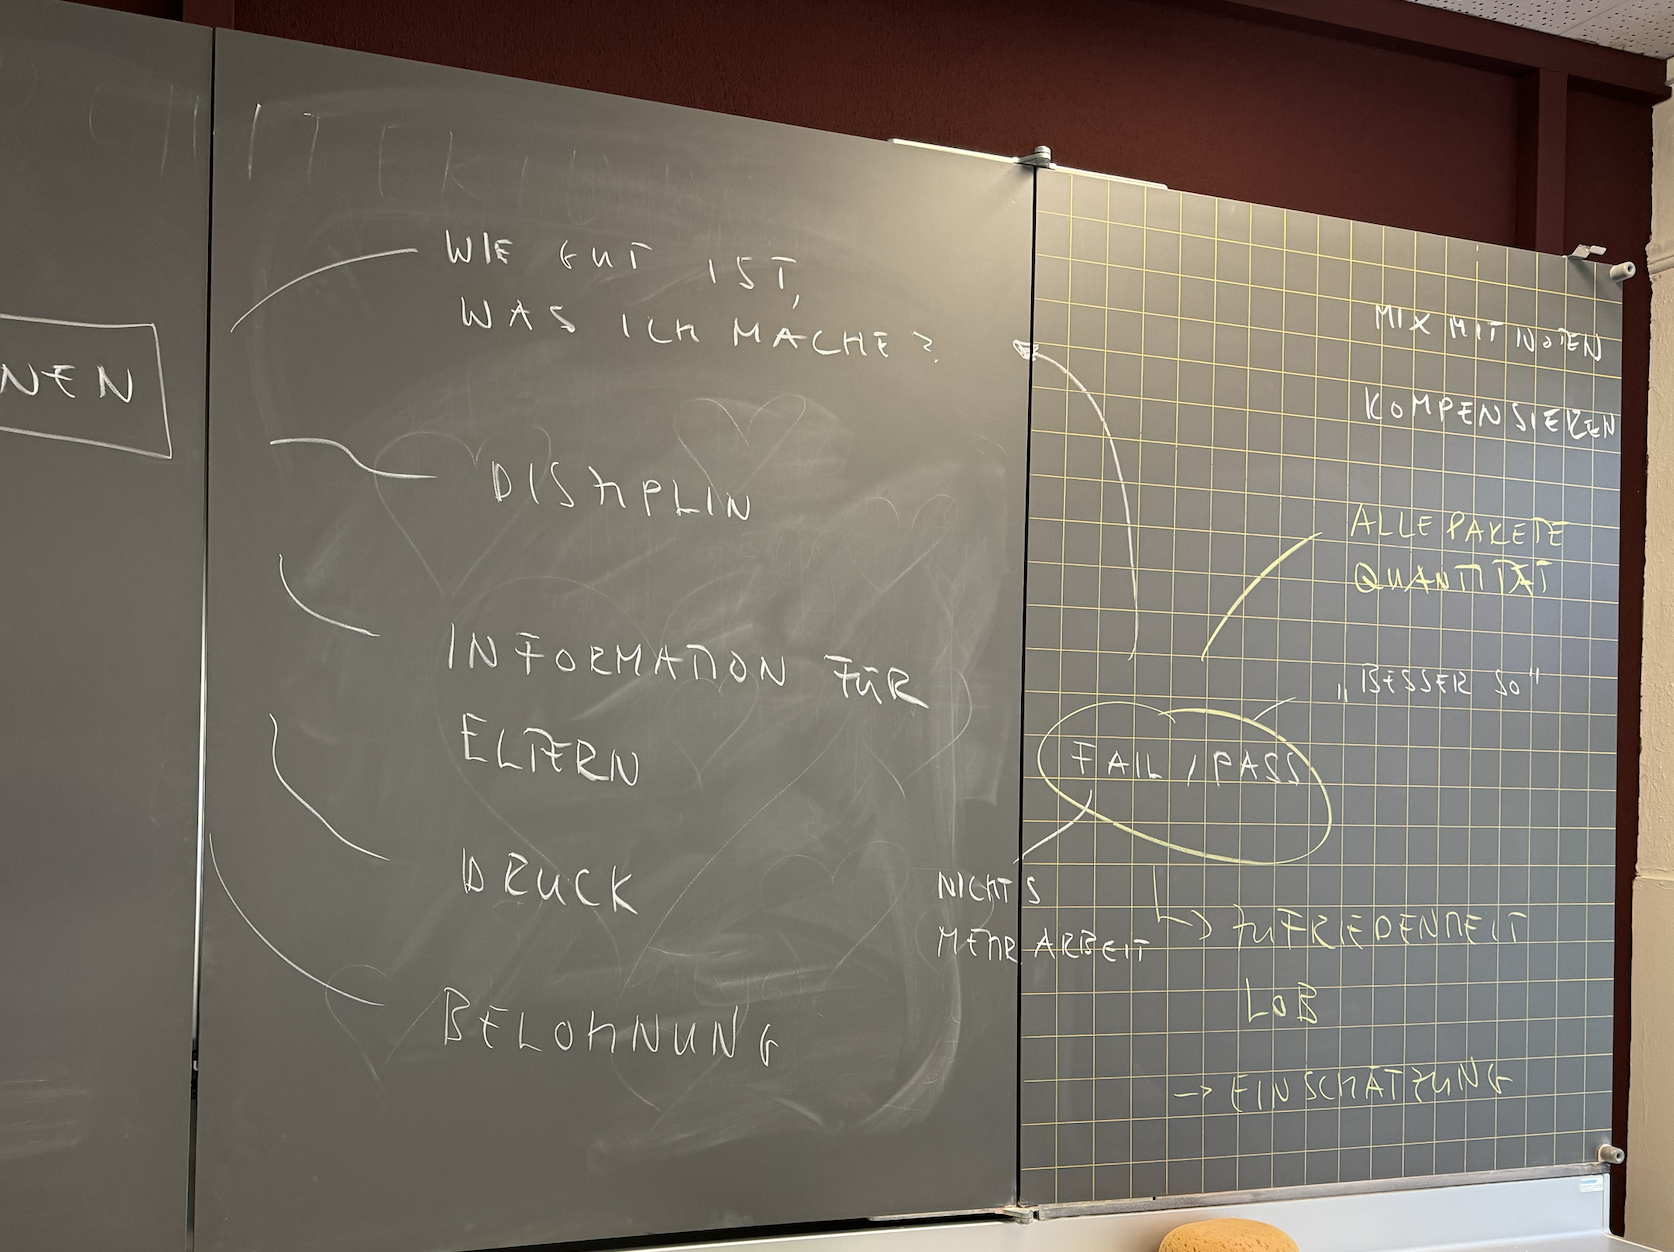 NEN
WIE GUT IST,
WAS ICH MACHE?
DISZIPLIN
INFORMATION FÜR
ELTERN
DRUCK
BELOHNUNG
MIX MIT NOTEN
KOMPENSIEREN
ALLE PAKETE
QUANTITÄT
„BESSER SO"
FAIL / PASS
NICHTS
MEHR ARBEIT
↳ ZUFRIEDENHEIT
LOB
→ EINSCHÄTZUNG